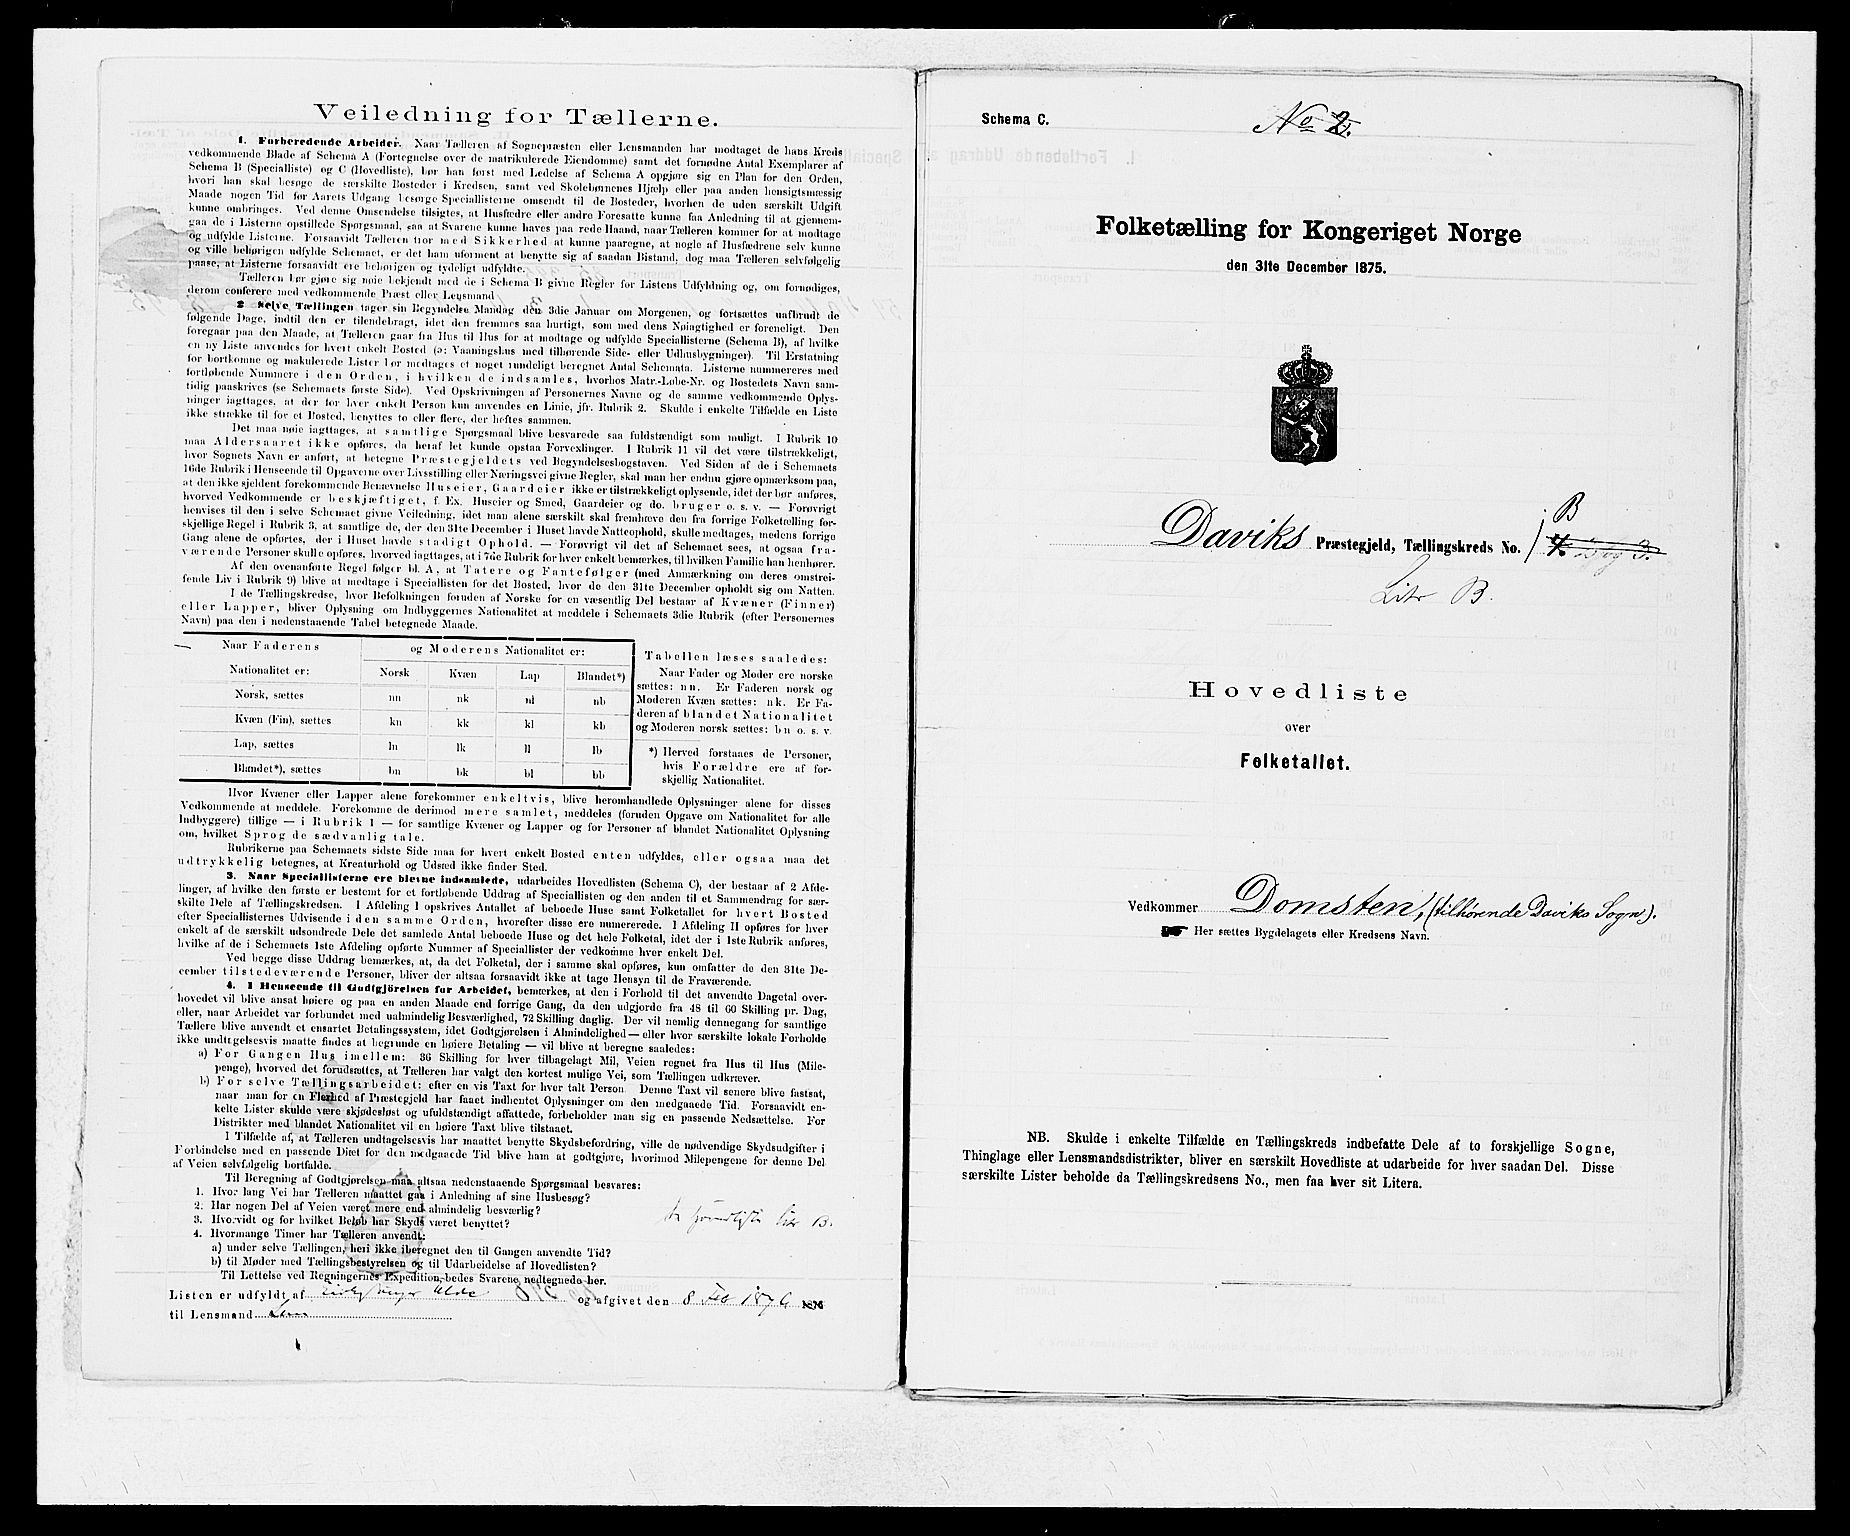 Veiledning for Tællerne.
1. Forberedende Arbeider. Naar Tælleren af Sognepræsten eller Lensmanden har modtaget de hans Kreds
vedkommende Blade af Schema A (Fortegnelse over de matrikulerede Eiendomme) samt det fornødne Antal Exemplarer af
Schema B (Specialliste) og C (Hovedliste), bør han først med Ledelse af Schema A opgjøre sig en Plan for den Orden,
hvori han skal besøge de særskilte Bosteder i Kredsen, samt ved Skolebørnenes Hjælp eller paa anden hensigtsmæssig
Maade nogen Tid før Aarets Udgang besørge Speciallisterne omsendt til de Bosteder, hvorhen de uden særskilt Udgift
kunne ombringes. Ved denne Omsendelse tilsigtes, at Husfædre eller andre Foresatte kunne faa Anledning til at gjennem-
gaa de i Listerne opstillede Spørgsmaal, saa at Svarene kunne haves paa rede Haand, naar Tælleren kommer for at modtage
og udfylde Listerne. Forsaavidt Tælleren tror med Sikkerhed at kunne paaregne, at nogle af Husfædrene selv kunne
og ville behørigen udfylde Schemaet, er det ham uforment at benytte sig af saadan Bistand, dog maa Tælleren selvfølgelig
paase, at Listerne forsaavidt ere behørigen og tydeligt udfyldte.
Tælleren bør gjøre sig nøie bekjendt med de i Schema B givne Regler for Listens Udfyldning og, om fornødiges,
derom conferere med vedkommende Præst eller Lensmand
2 Selve Tællingen tager sin Begyndelse Mandag den 3die Januar om Morgenen, og fortsættes uafbrudt de
følgende Dage, indtil den er tilendebragt, idet den fremmes saa hurtigt, som med dens Nøiagtighed er foreneligt. Den
foregaar paa den Maade, at Tælleren gaar fra Hus til Hus for at modtage og udfylde Speciallisterne (Schema B), af hvilke
en ny Liste anvendes for hvert enkelt Bosted (ɔ: Vaaningshus med tilhørende Side- eller Udhusbygninger). Til Erstatning
for bortkomne og makulerede Lister bør medtages et noget rundeligt beregnet Antal Schemata. Listerne nummereres med
fortløbende Nummere i den Orden, i hvilken de indsamles, hvorhos Matr.-Løbe-Nr. og Bostedets Navn sam-
tidig paaskrives (se Schemaets første Side). Ved Opskrivningen af Personernes Navne og de samme vedkommende Oplys-
ninger iagttages, at der for hver enkelt Person kun anvendes en Linie, jfr. Rubrik 2. Skulde i enkelte Tilfælde en Liste
ikke strække til for et Bosted, benyttes to eller flere, der heftes sammen.
Det maa nøie iagttages, at samtlige Spørgsmaal blive besvarede saa fuldstændigt som muligt. I Rubrik 10
maa Aldersaaret ikke opføres, da heraf let kunde opstaa Forvexlinger. I Rubrik 11 vil det være tilstrækkeligt,
hvor Sognets Navn er anført, at betegne Præstegjeldets ved Begyndelsesbogstaven. Ved Siden af de i Schemaets
16de Rubrik i Henseende til Opgaverne over Livsstilling eller Næringsvei givne Regler, skal man her endnu gjøre opmærksom paa,
at den ikke sjeldent forekommende Benævnelse Huseier, Gaardeier ikke er tilstrækkeligt oplysende, idet der bør anføres,
hvorved Vedkommende er beskjæftiget, f. Ex. Huseier og Smed, Gaardeier og do. bruger o. s. v. — Forøvrigt
henvises til den i selve Schemaet givne Veiledning, idet man alene særskilt skal fremhæve den fra forrige Folketælling for-
skjellige Regel i Rubrik 3, at samtlige de, der den 31te December i Huset havde Natteophold, skulle medtages, medens forrige
Gang alene de opførtes, der i Huset havde stadigt Ophold. — Forøvrigt vil det af Schemaet sees, at ogsaa fra-
værende Personer skulle opføres, hvorved iagttages, at i 7de Rubrik for hver enkelt bemærkes, til hvilken Familie han henhører.
Af den ovenanførte Regel følger bl. A, at Tatere og Fantefølger (med Anmærkning om deres omstrei-
fende Liv i Rubrik 9) blive at medtage i Speciallisten for det Bosted, hvor de den 31te December opholdt sig om Natten.
I de Tællingskredse, hvor Befolkningen foruden af Norske for en væsentlig Del bestaar af Kvæner (Finner)
eller Lapper, bliver Oplysning om Indbyggernes Nationalitet at meddele i Schemaets 3die Rubrik (efter Personernes
Navn) paa den i nedenstaaende Tabel betegnede Maade.
Naar Faderens og Moderens Nationalitet er:
Nationalitet er: Norsk Kvæn Lap Blandet*)
Norsk, sættes nn nk nl nb
Kvæn (Fin), sættes kn kk kl kb
Lap, sættes ln lk ll lb
Blandet*), sættes bn bk bl bb
Tabellen læses saaledes:
Naar Fader og Moder ere norske
sættes: nn. Er Faderen norsk og
Moderen Kvæn sættes: nk. Er Fa-
deren af blandet Nationalitet
og Moderen norsk sættes: bn o. s. v.
*) Herved forstaaes de Personer,
hvis Forældre ere af for-
skjellig Nationalitet.
Hvor Kvæner eller Lapper alene forekommer enkeltvis, blive heromhandlede Oplysninger alene for disses
Vedkommende at meddele. Forekomme de derimod mere samlet, meddeles (foruden Opgave om Nationalitet for alle
Indbyggere) tillige — i Rubrik 1 — for samtlige Kvæner og Lapper og for Personer af blandet Nationalitet Oplysning
om, hvilket Sprog de sædvanlig tale.
Rubrikerne paa Schemaets sidste Side maa for hvert enkelt Bosted enten udfyldes, eller ogsaa maa det
udtrykkelig betegnes, at Kreaturhold og Udsæd ikke finder Sted.
3. Naar Speciallisterne ere blevne indsamlede, udarbeides Hovedlisten (Schema C), der bestaar af 2 Afde-
linger, af hvilke den første er bestemt for et fortløbende Uddrag af Speciallisten og den anden til et Sammendrag for sær-
skilte Dele af Tællingskredsen. I Afdeling I opskrives Antallet af beboede Huse samt Folketallet for hvert Bosted
efter Speciallisternes Udvisende i den samme Orden, hvorefter disse ere numererede. I Afdeling II opføres for hver
enkelt af de særskilt udsondrede Dele det samlede Antal beboede Huse og det hele Folketal, idet der i 1ste Rubrik anføres,
hvilke af de i Schemaets 1ste Afdeling opførte Nummer af Speciallister der vedkomme hver enkelt Del.
Ved begge disse Uddrag bemærkes, at, da det Folketal, der i samme skal opføres, kun omfatter de den 31te De-
cember tilstedeværende Personer, bliver der altsaa forsaavidt ikke at tage Hensyn til de Fraværende.
4. I Henseende til Godtgjörelsen for Arbeidet, bemærkes, at den i Forhold til det anvendte Dagetal over-
hovedet vil blive ansat høiere og paa en anden Maade end forrige Gang, da den udgjorde fra 48 til 60 Skilling pr. Dag,
eller, naar Arbeidet var forbundet med ualmindelig Besværlighed, 72 Skilling daglig. Der vil nemlig dennegang for samtlige
Tællere blive anvendt et ensartet Betalingssystem, idet Godtgjørelsen i Almindelighed — eller hvor særskilte lokale Forholde
ikke undtagelsesvis maatte findes at begrunde en høiere Betaling — vil blive at beregne saaledes:
a) For Gangen Hus imellem: 36 Skilling for hver tilbagelagt Mil, Veien regnet fra Hus til Hus (Mile-
penge), hvorved det forudsættes, at Tælleren har valgt den kortest mulige Vei, som Tællingen udkræver.
b) For selve Tællingsarbeidet: efter en vis Taxt for hver talt Person. Denne Taxt vil senere blive fastsat,
naar man for en Flerhed af Præstegjeld har faaet indhentet Oplysninger om den medgaaede Tid. Forsaavidt en-
kelte Lister skulde være skjødesløst og ufuldstændigt affattede, forbeholder man sig en passende Nedsættelse. For
Distrikter med blandet Nationalitet vil en høiere Taxt blive tilstaaet.
I Tilfælde af, at Tælleren undtagelsesvis har maattet benytte Skydsbefordring, ville de nødvendige Skydsudgifter i
Forbindelse med en passende Diæt for den medgaaede Tid blive ham at godtgjøre, hvorimod Milepengene for denne Del
af Veien selvfølgelig bortfalde.
Til Beregning af Godtgjørelsen maa altsaa nedenstaaende Spørgsmaal besvares:
1. Hvor lang Vei har Tælleren maattet gaa i Anledning af sine Husbesøg?
2. Har nogen Del af Veien været mere end almindelig besværlig?
3. Hvorvidt og for hvilket Beløb har Skyds været benyttet?
4. Hvormange Timer har Tælleren anvendt:
a) under selve Tællingen, heri ikke iberegnet den til Gangen anvendte Tid?
b) til Møder med Tællingsbestyrelsen og til Udarbeidelse af Hovedlisten?
Til Lettelse ved Regningernes Expedition bedes Svarene nedtegnede her.
Listen er udfyldt af og afgivet den 8 Feb 1876 1876
til Lensmand
Schema C.
No 2.
Folketælling for Kongeriget Norge
den 31te December 1875.
Daviks Præstegjeld, Tællingskreds No. 1 B
Litr B.
Hovedliste
over
Folketallet.
Vedkommer Domsten, (tilhørende Daviks Sogn).
Her sættes Bygdelagets eller Kredsens Navn.
NB. Skulde i enkelte Tilfælde en Tællingskreds indbefatte Dele af to forskjellige Sogne,
Thinglage eller Lensmandsdistrikter, bliver en særskilt Hovedliste at udarbeide for hver saadan Del. Disse
særskilte Lister beholde da Tællingskredsens No., men faa hver sit Litera.